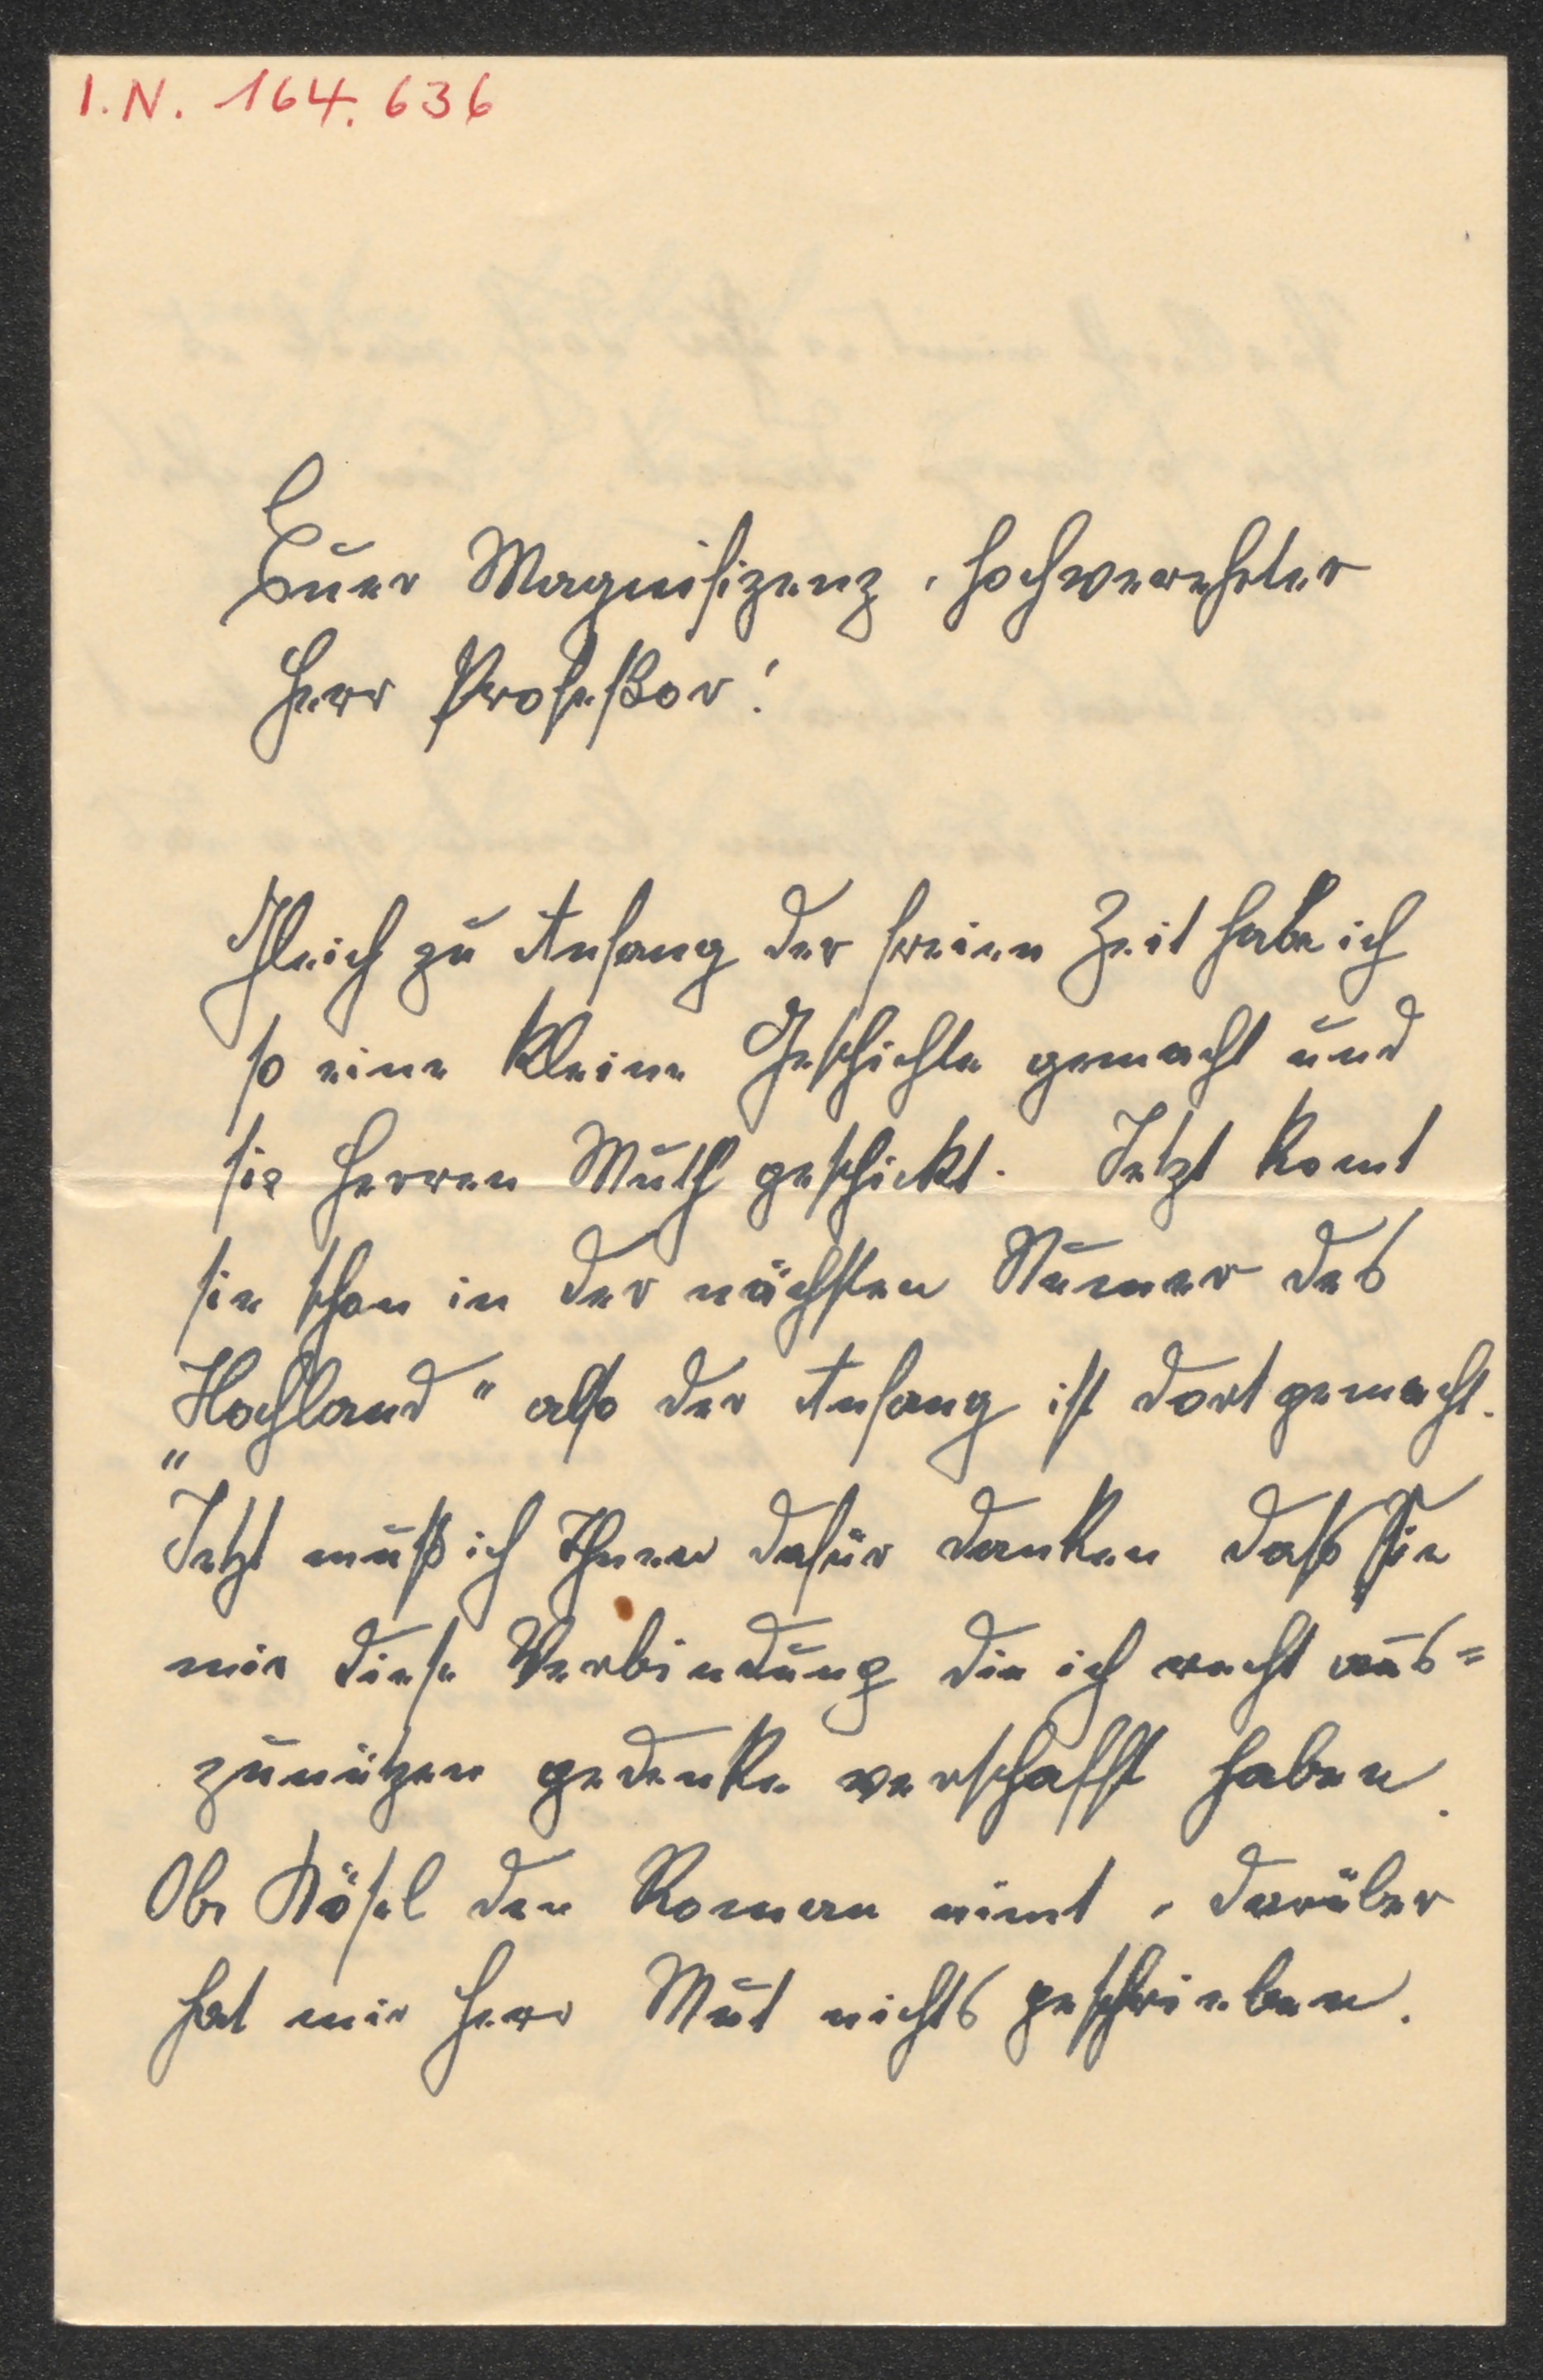 I.N. 164.636
Euer Magnifizenz, hochverehrter
Herr Profeßor!
Gleich zu Anfang der freien Zeit habe ich
so eine kleine Geschichte gemacht und
sie Herren Muth geschickt. Jetzt komt
sie schon in der nächsten Numer des
„Hochland" also der Anfang ist dort gemacht.
Jetzt muß ich Ihnen dafür danken daß Sie
mir diese Verbindung die ich recht aus=
zunützen gedenke verschafft haben.
Ob Kösel den Roman nimt, darüber
hat mir Herr Mut nichts geschrieben.